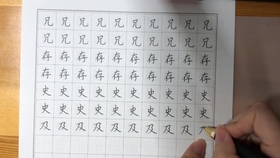 兄兄兄兄兄兄兄兄兄兄
兄兄兄兄兄兄兄兄兄兄
存存存存存存存存存存
存存存存存存存存存存
史史史史史史史史史史
史史史史史史史史史史
及及及及及及及及及